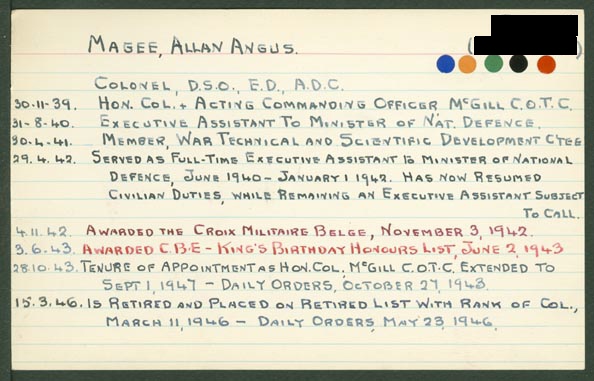 MAGEE, ALLAN ANGUS.
COLONEL, D.S.O., E.D., A.D.C.
30-11-39. HON. COL. + ACTING COMMANDING OFFICER MCGILL C.O.T.C.
31-8-40. EXECUTIVE ASSISTANT TO MINISTER OF NAT. DEFENCE.
30.4.41. MEMBER, WAR TECHNICAL AND SCIENTIFIC DEVELOPMENT C'TEE
29.4.42. SERVED AS FULL-TIME EXECUTIVE ASSISTANT TO MINISTER OF NATIONAL
DEFENCE, JUNE 1940 - JANUARY 1 1942. HAS NOW RESUMED
CIVILIAN DUTIES, WHILE REMAINING AN EXECUTIVE ASSISTANT SUBJECT
TO CALL.
4.11.42. AWARDED THE CROIX MILITAIRE BELGE, NOVEMBER 3, 1942.
3.6.43. AWARDED C.B.E - KING'S BIRTHDAY HONOURS LIST, JUNE 2, 1943
28.10.43. TENURE OF APPOINTMENT AS HON. COL. MCGILL C.O.T.C. EXTENDED TO
SEPT 1, 1947 - DAILY ORDERS, OCTOBER 27, 1943.
15.3.46. IS RETIRED AND PLACED ON RETIRED LIST WITH RANK OF COL.,
MARCH 11, 1946 - DAILY ORDERS, MAY 23, 1946.